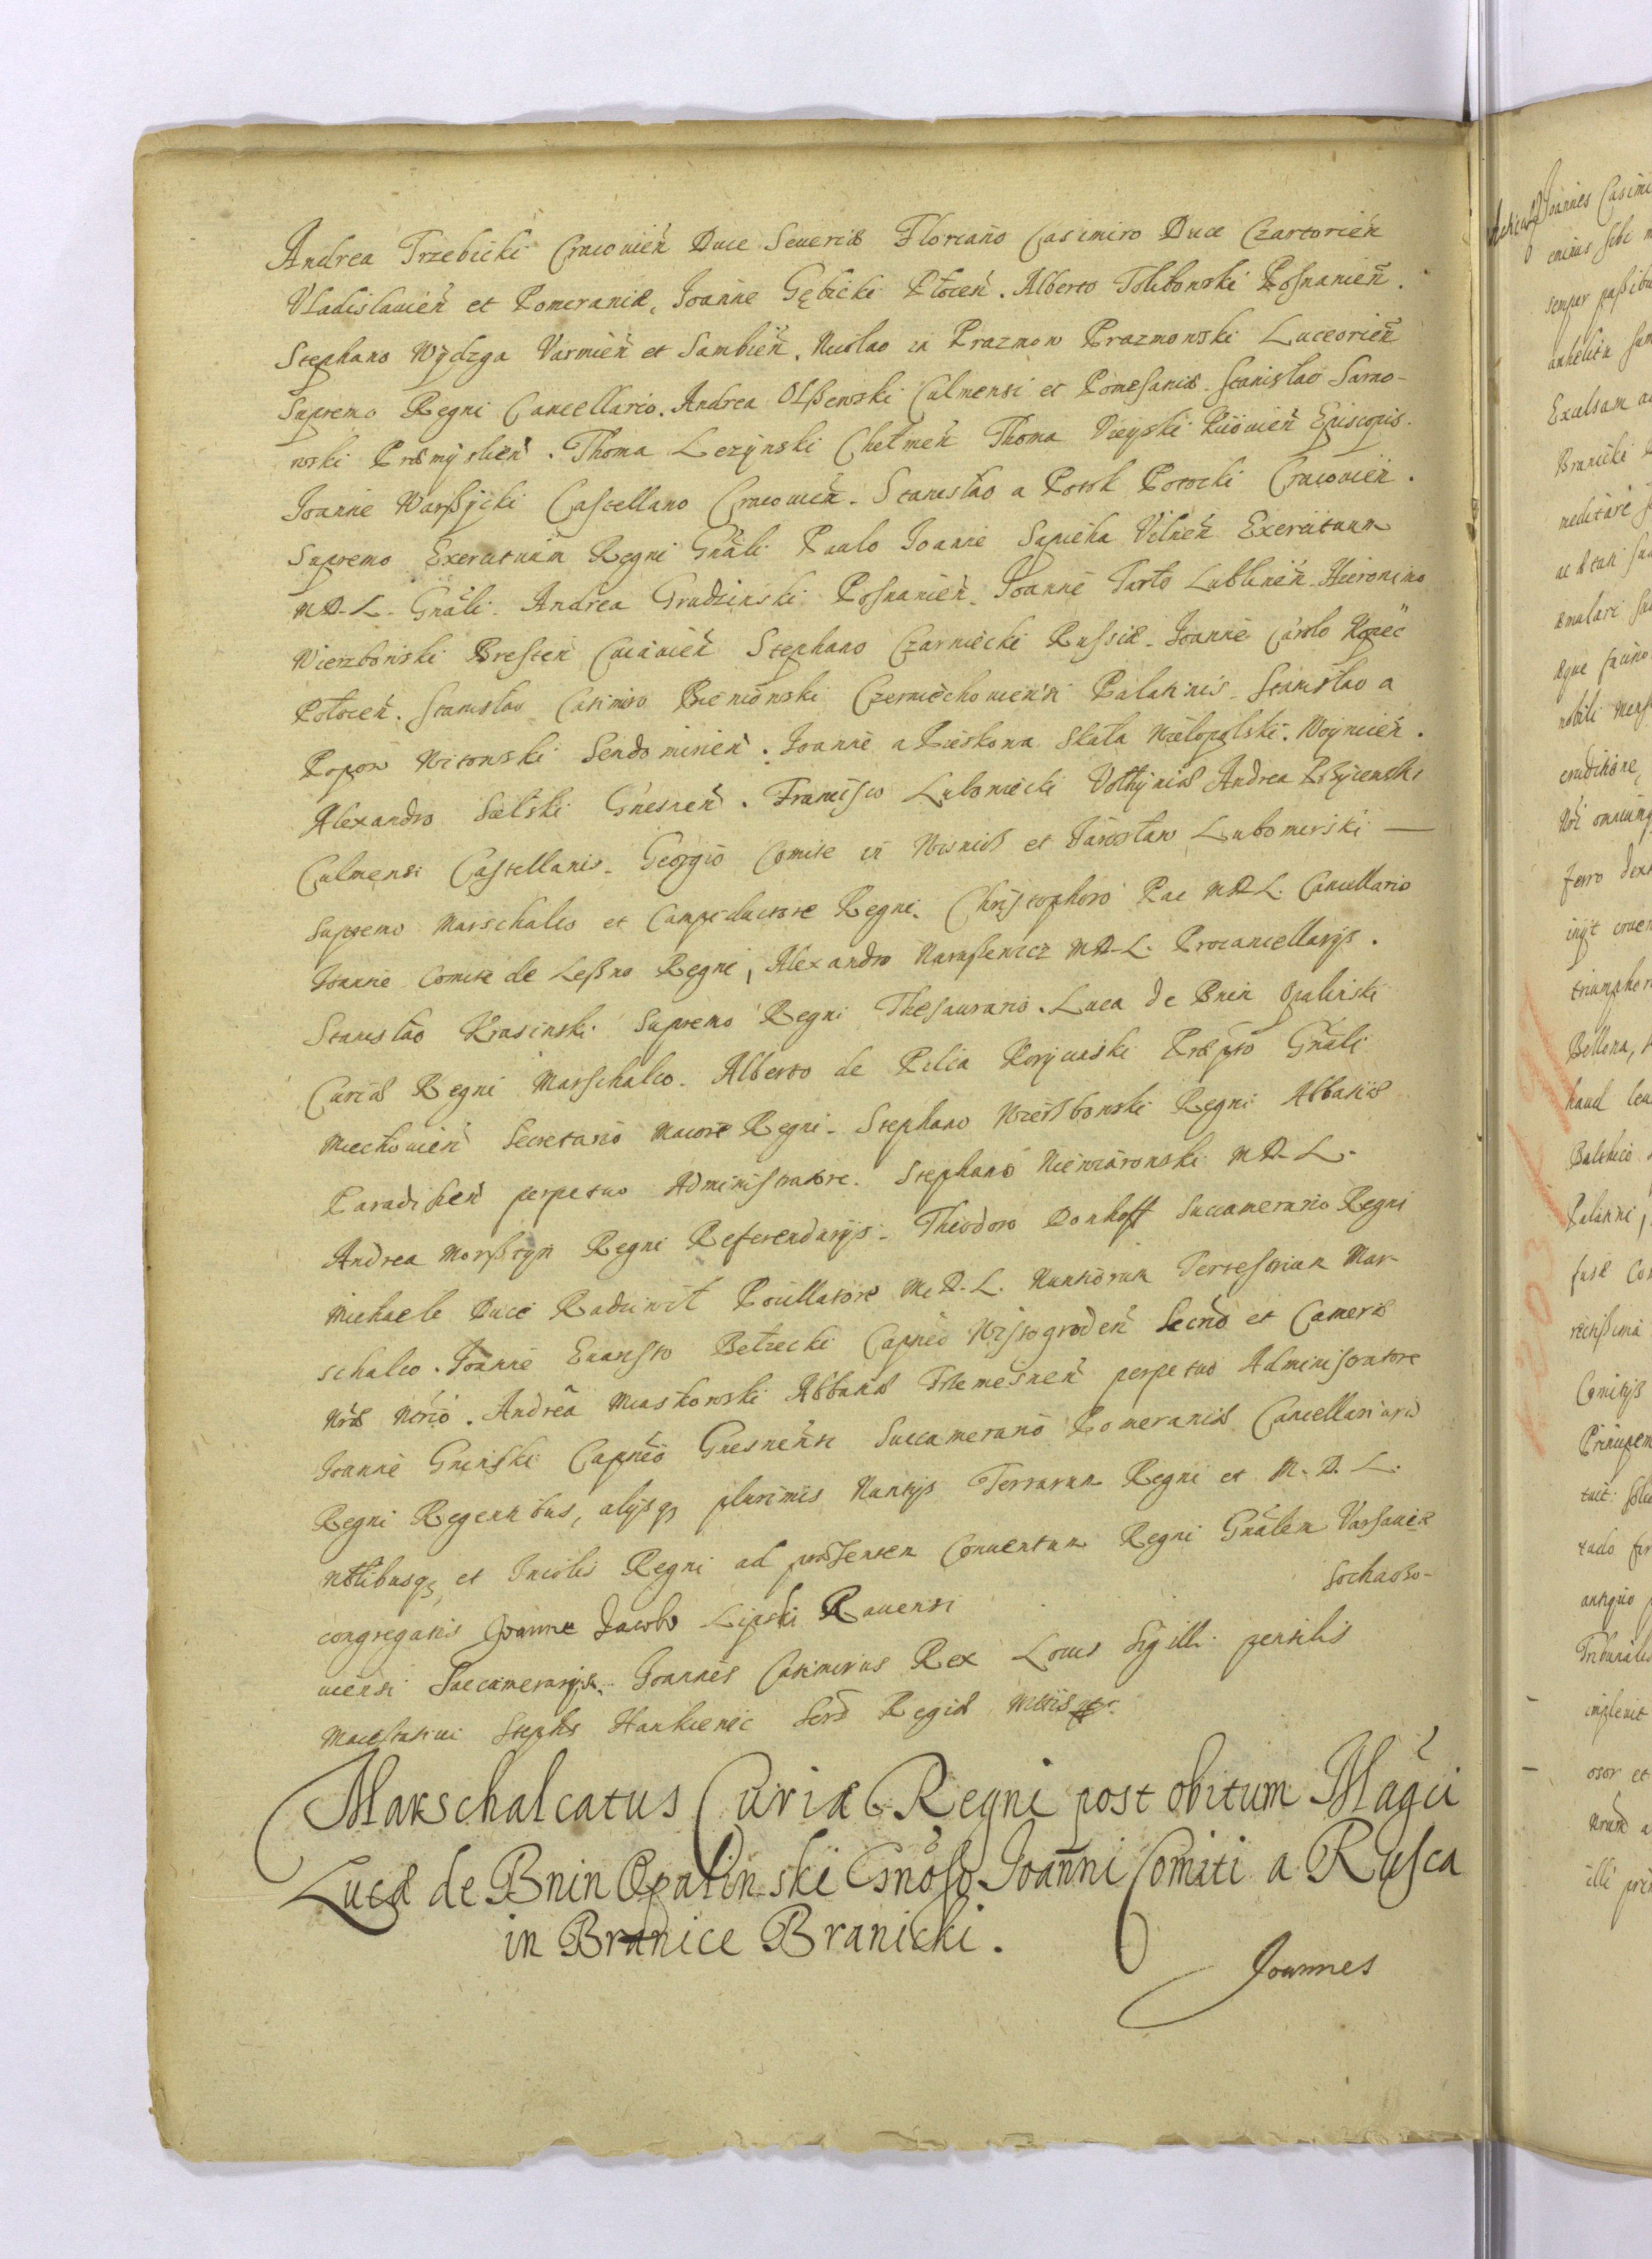 Andrea Trzebicki Cracovien̄ Duce Severiæ Floriano Casimiro Duce Czartorien̄
Vladislavien̄ et Pomeraniæ, Joanne Gębicki Płocen̄. Alberto Tolibowski Posnanien̄.
Stephano Wydzga Varmien̄ et Sambien̄, Nicolao in Prazmow Prazmowski Luceorien̄
Supremo Regni Cancellario. Andrea Olszewski Culmensi et Pomesaniæ. Stanislao Sarno-
wski Præmyslien̄. Thoma Lezynski Chełmen̄ Thoma Vieyski Kiiovien̄ Episcopis.
Joanne Warszycki Castellano Cracovien̄. Stanislao a Potok Potocki Cracovien̄.
Supremo Exercituum Regni Gn̄ali Paulo Joanne Sapieha Vilnen̄ Exercituum
M. D. L. Gn̄ali. Andrea Grudzinski Posnanien̄. Joanne Tarło Lublinen̄. Hieronimo
Wierzbowski Bresten̄ Cuiavien̄ Stephano Czarniecki Russiæ. Joanne Carolo Kopec
Połocen̄. Stanislao Casimiro Bieniewski Czerniechoviensi Palatinis. Stanislao a
Popow Witowski Sendomirien̄. Joanne a Pieskowa Skała Wielopolski. Woynicien̄.
Alexandro Sielski Gnesnen̄. Francisco Lubowiecki Vołhyniæ Andrea
Culmensi Castellanis. Georgio Comite in Wisnicz et Jarosław Lubomirski —
Supremo Marschalco et Campiductore Regni. Christophoro Pac M D L. Cancellario
Joanne Comite de Leszno Regni, Alexandro Naruszewicz M D. L. Procancellarijs.
Stanislao Krasinski Supremo Regni Thesaurario. Luca de Bnin Opalinski
Curiæ Regni Marschalco. Alberto de Pilca Koryciński Præpto Gn̄ali
Miechovien̄ Secretario Maiore Regni. Stephano Wierzbowski Regni Abbatiæ
Paradisien̄ perpetuo Administratore. Stephano Niewiarowski M D. L.
Andrea Morsztyn Regni Referendarijs. Theodoro Donhoff Succamerario Regni
Michaele Duce Radziwił Pocillatore M. D. L. Nuntiorum Terrestrium Mar-
schalco. Joanne Evaristo Bełzecki Capneo Wissogroden̄ Secrio et Cameræ
Nræ Notrio. Andrea Miaskowski Abbatiæ Trzemesnen̄ perpetuo Administratore
Joanne Gninski Capneo Gnesnensi Succamerario Pomeraniæ Cancellariarū
Regni Regentibus, alijsq; plurimis Nuntijs Terrarum Regni et M. D. L.
Nobilibusq; et Incolis Regni ad præsentem Conventum Regni Gn̄alem Varsaviæ
congregatis Joanne Jacobo Lipski Ravensi Sochaczo-
viensi Succamerarijs. Joannes Casimirus Rex Locus Sigilli pensilis
Maiestatici Stephs Hankiewic Secr̄ Regiæ Mttis
Marschalcatus Curiæ Regni post obitum Magci
Lucæ de Bnin Opalinski Gnoso Joanni Comiti a Rusca
in Branice Branicki.
Joannes